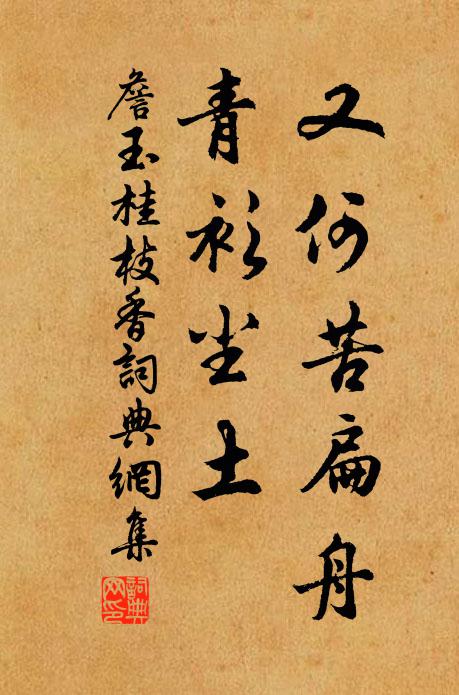 又何苦扁舟
青衫尘土
詹玉桂枝香詞典網集
詞典网印